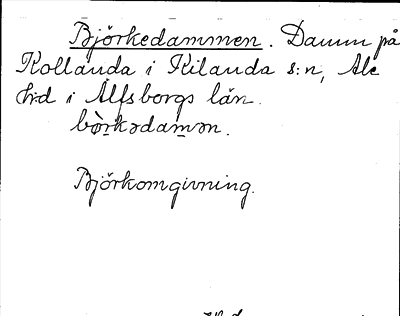 Björkedammen. Damm på
Kollanda i Kilanda s:n, Ale
hd i Älfsborgs län.
bò̱rkədamən.
Björkomgivning.